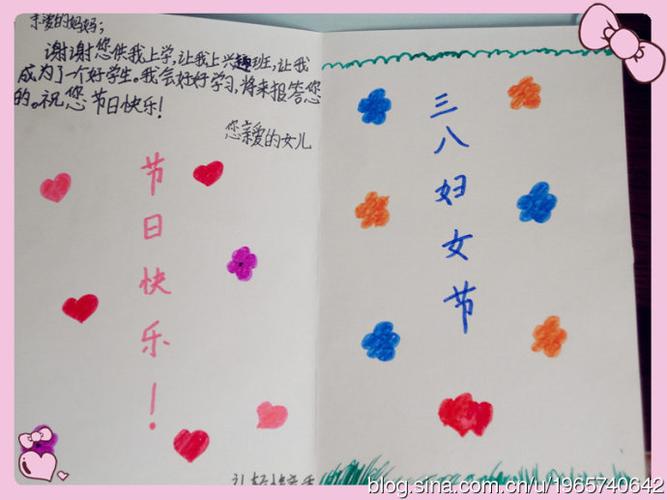 亲爱的妈妈；
谢谢您供我上学，让我上兴趣班，让我
成为了一个好学生。我会好好学习，将来报答您
的。祝您节日快乐！
您亲爱的女儿
节日快乐！
三八妇女节
blog.sina.com.cn/u/1965740642